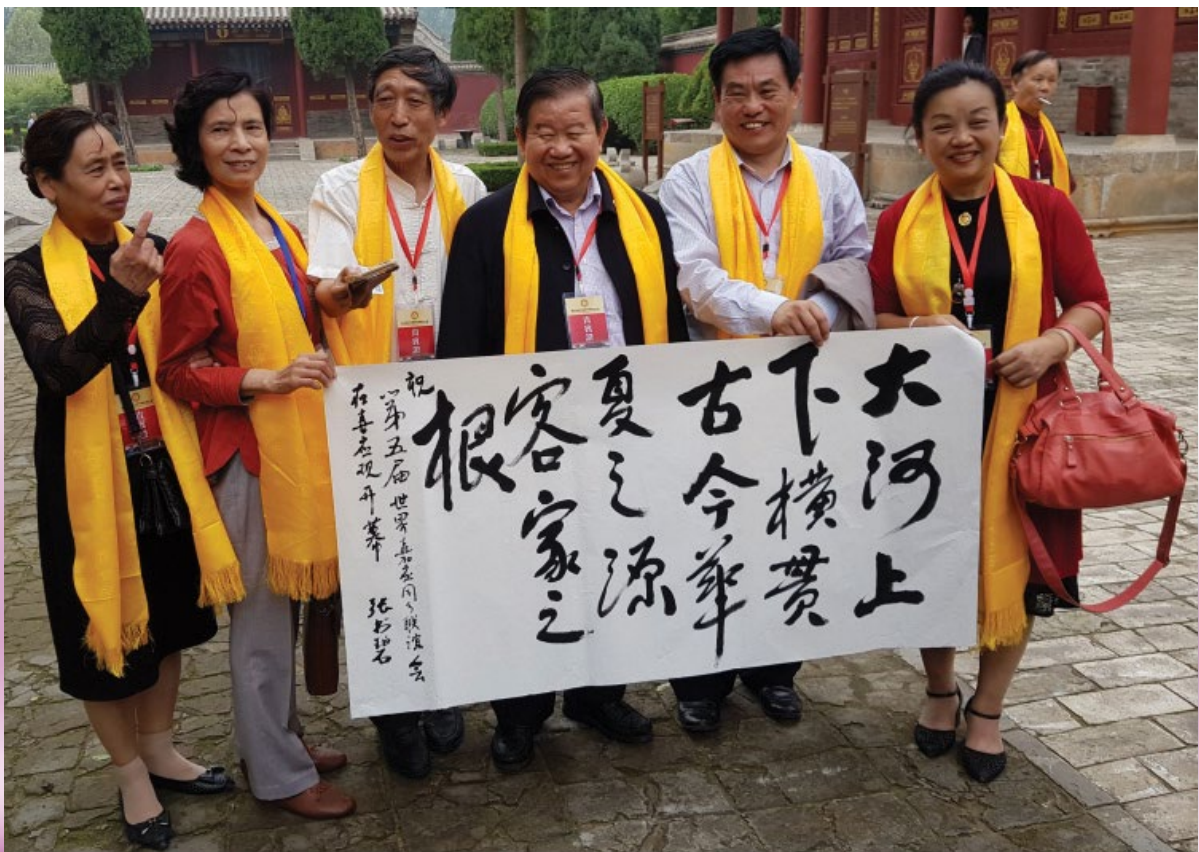 大河上
下横贯
古今華
夏之源
客家之
根
祝
第五届世界嘉应同乡联谊会
在嘉应观开幕
张书碧